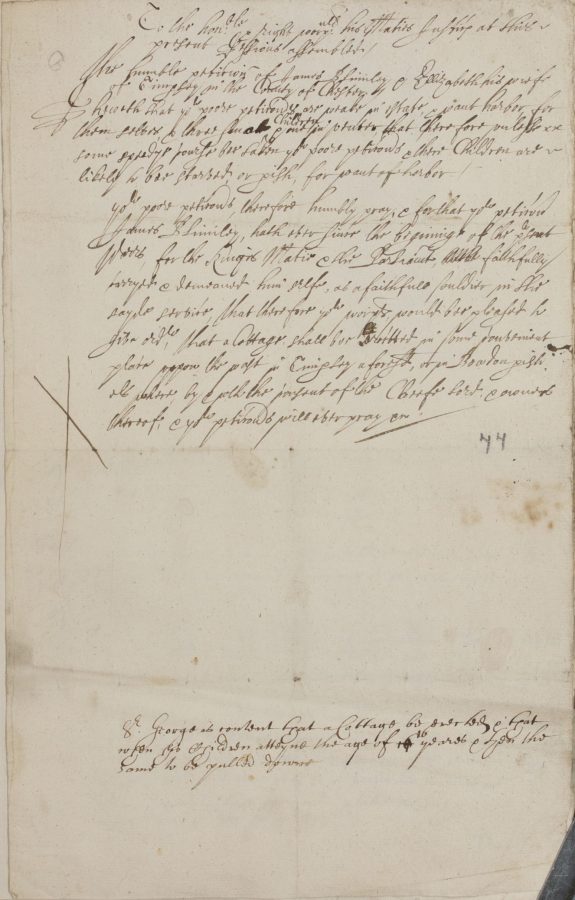 To the hon:ble & right worp:ull his Ma:ties Justices at this
present Sessions assembled
The humble petition of James & Ellizabeth his wife
of Timpley in the County of Chester
Sheweth that yo:r poore petition:rs are weake in state & want harbor for
them selves & three small Children & one in venter that therefore unlesse
some speedye course bee taken yo:r poore petition:rs & there Children are
likely to bee starved or pish: for want of harbor
yo:r poore petition:rs, therefore humbly pray, & for that yo:r petition:r
James hath ever since the beginning of the great
Warrs for the Kings Ma:tie & the Parliament, faithfully
carryed & demeaned him selfe, as a faithfull souldier in the
sayde service, that therefore yo:r worps would bee pleased to
give order, that a Cottage shall bee erected in some convenient
place uppon the wast in Timpley aforesd, or in Bowdon pish
els where, by & with the consent of the Cheefe lord, & owners
thereof, & yo:r petition:rs will ever pray &c
44
Sr. George is content that a Cottage be erected & that
when his Children atteyne the age of 16 yeares & then the
same to be pulled downe